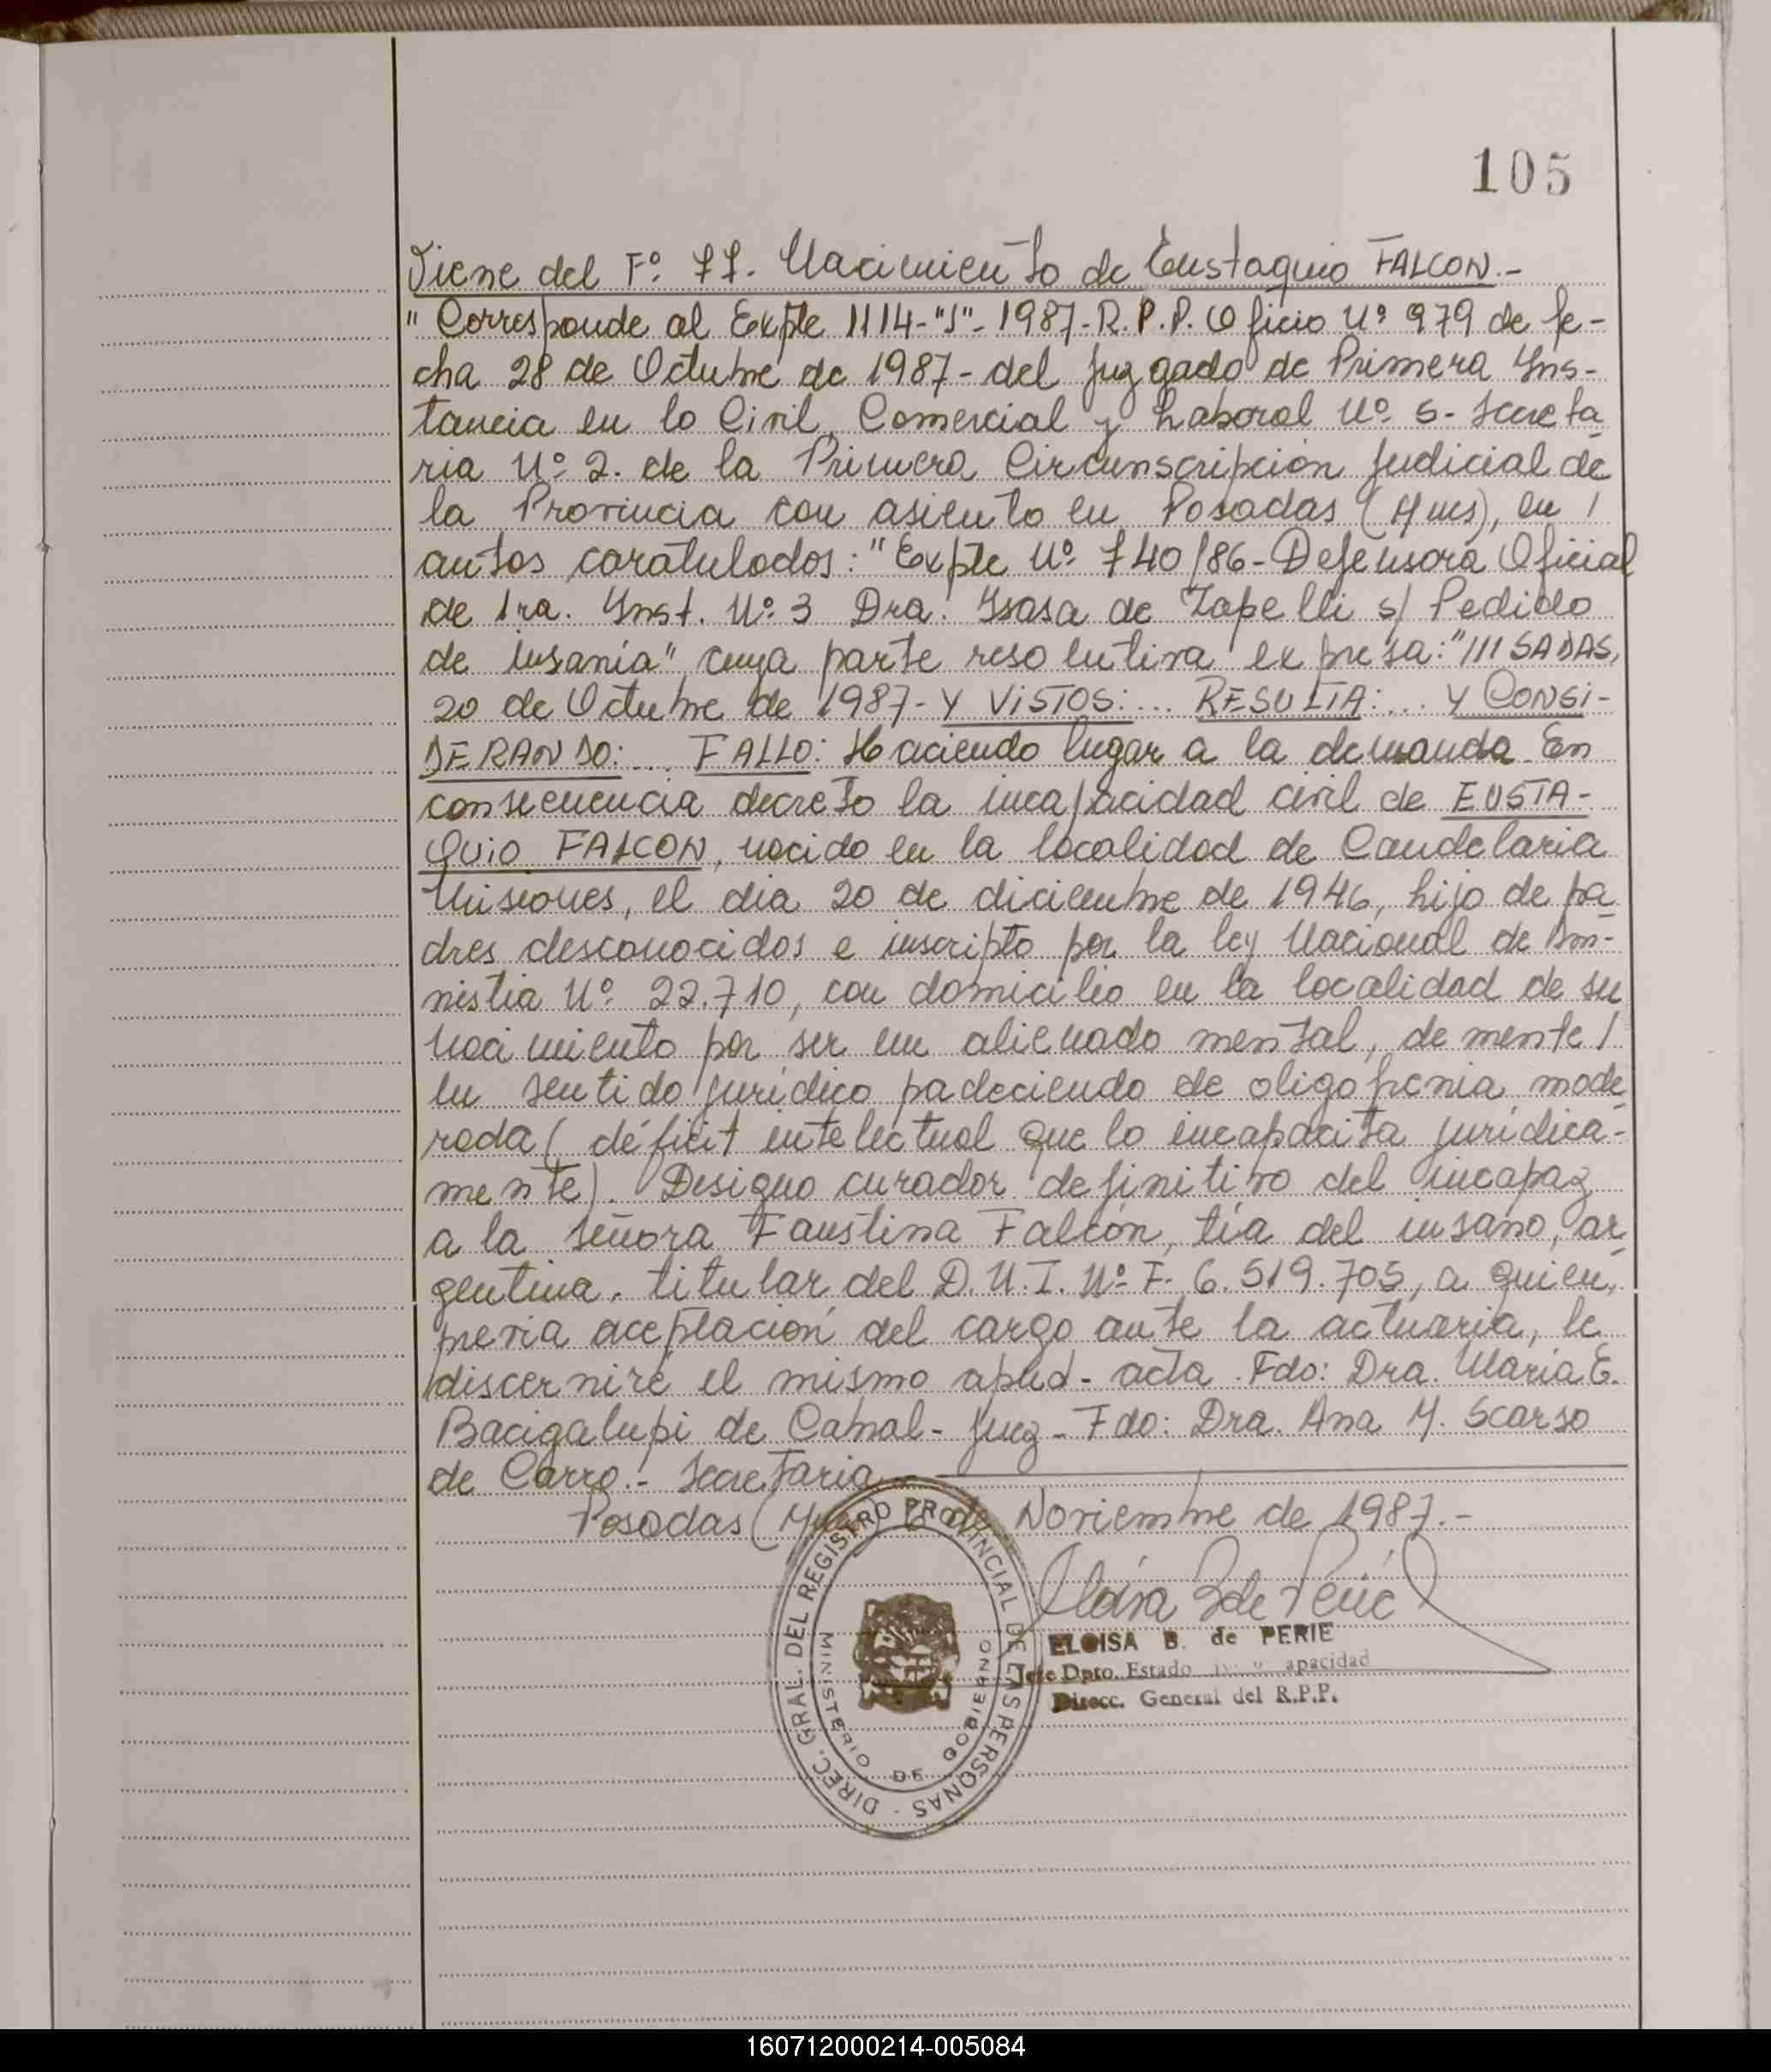 105
Viene del Fº 77. Nacimiento de Eustaquio FALCON.-
"Corresponde al Expte 1114-"J"-1987-R.P.P. Oficio Nº 979 de fe-
cha 28 de Octubre de 1987- del Juzgado de Primera Ins-
tancia en lo Civil, Comercial y Laboral Nº 5- Secreta
ria Nº 2. de la Primera Circunscripción Judicial de
la Provincia con asiento en Posadas (Mnes), en /
autos caratulados: "Expte Nº 740/86-Defensora Oficial
de 1ra. Inst. Nº 3 Dra. Isasa de Zapelli s/ Pedido
de insania" cuya parte resolutiva expresa: "///SADAS,
20 de Octubre de 1987- Y VISTOS:... RESULTA:... Y CONSI-
DERANDO:... FALLO: Haciendo lugar a la demanda. En
consecuencia decreto la incapacidad civil de EUSTA-
QUIO FALCON, nacido en la localidad de Candelaria
Misiones, el día 20 de diciembre de 1946, hijo de pa
dres desconocidos e inscripto por la ley Nacional de Am-
nistia Nº 22.710, con domicilio en la localidad de su
nacimiento por ser un alienado mental, demente /
en sentido jurídico padeciendo de oligofrenia mode
rada (déficit intelectual que lo incapacita jurídica-
mente). Designo curador definitivo del incapaz
a la señora Faustina Falcón, tía del insano, ar
gentina, titular del D.N.I. Nº F. 6.519.705, a quien,
previa aceptación del cargo ante la actuaria, le
discerniré el mismo apud-acta. Fdo: Dra. María E.
Bacigalupi de Cabral- Juez- Fdo: Dra. Ana M. Scarso
de Carro.- Secretaria
Posadas (Mnes) de Noviembre de 1987.-
ELOISA B. de PERIE
Jefe Dpto. Estado y apacidad
Direcc. General del R.P.P.
DIREC. GRAL. DEL REGISTRO PROVINCIAL DE LAS PERSONAS -
MINISTERIO DE GOBIERNO
160712000214-005084